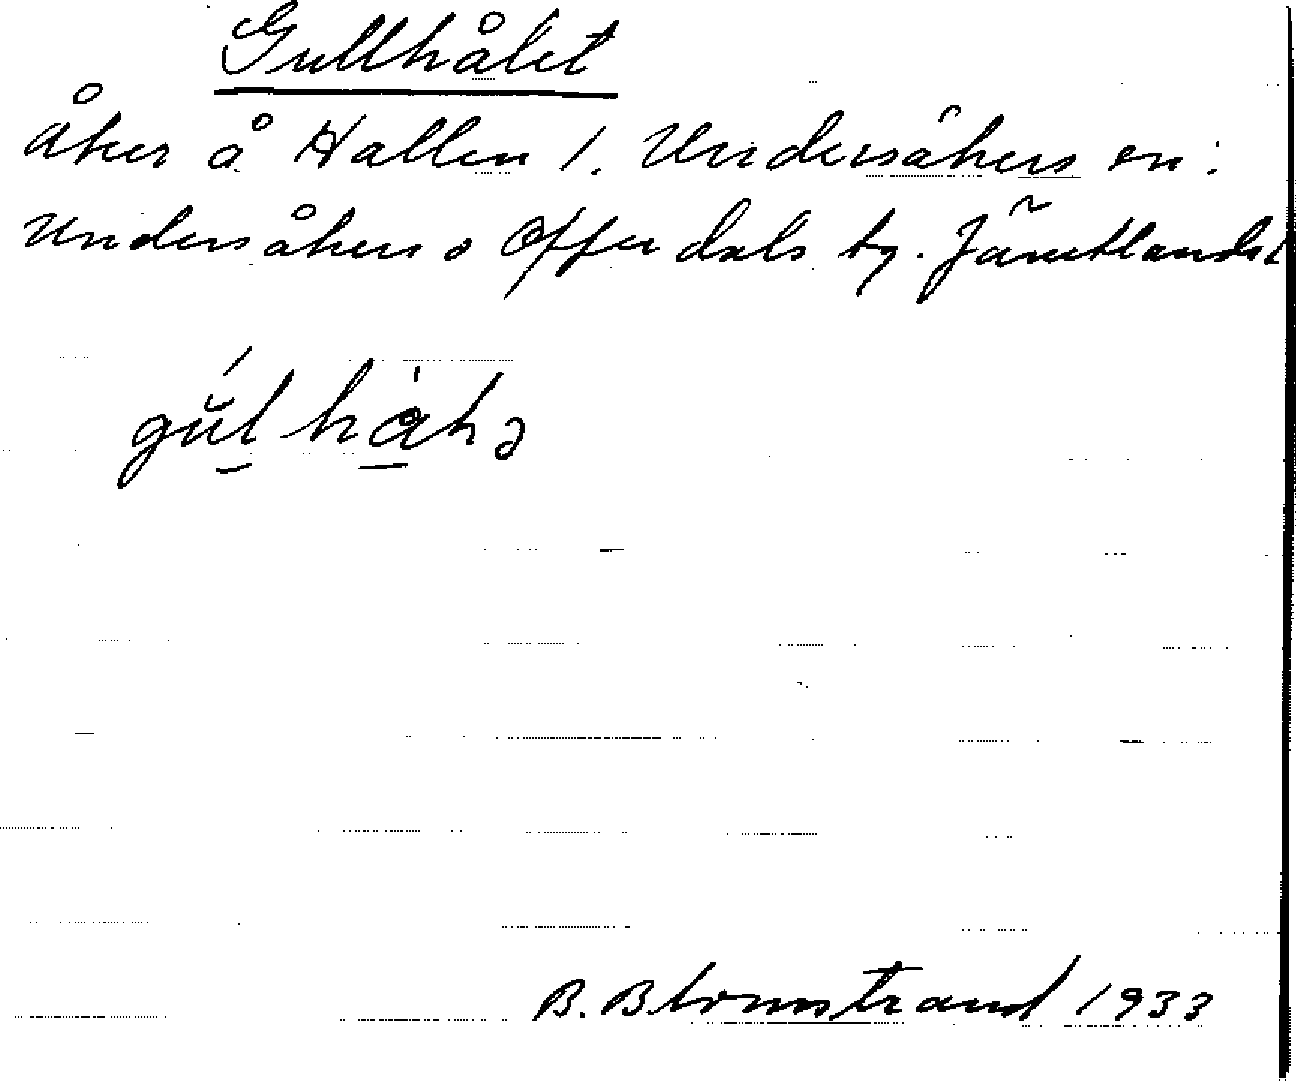 Gullhålet
Åker å Hallen 1. Undersåkers sn:
Undersåkers o Offerdals tg. Jämtlands l
B. Blomstrand 1933